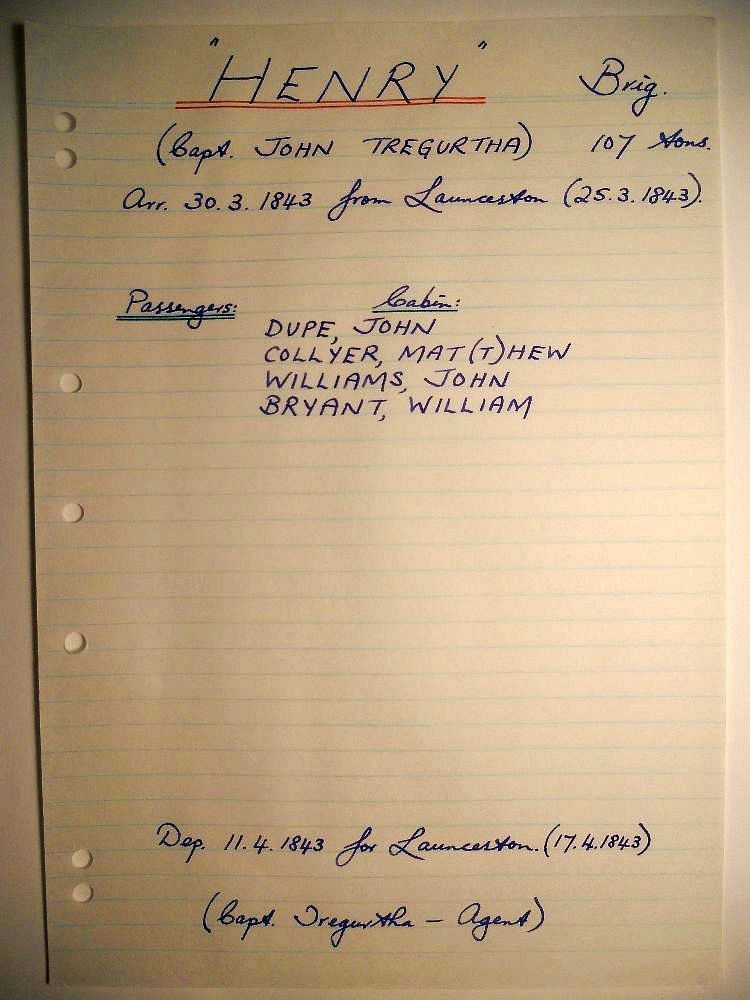 "HENRY" Brig.
(Capt. JOHN TREGURTHA) 107 tons.
Arr. 30.3.1843 from Launceston (25.3.1843).
Passengers: Cabin:
DUPE, JOHN
COLLYER, MAT(T)HEW
WILLIAMS, JOHN
BRYANT, WILLIAM
Dep. 11.4.1843 for Launceston. (17.4.1843)
(Capt. Tregurtha - Agent)